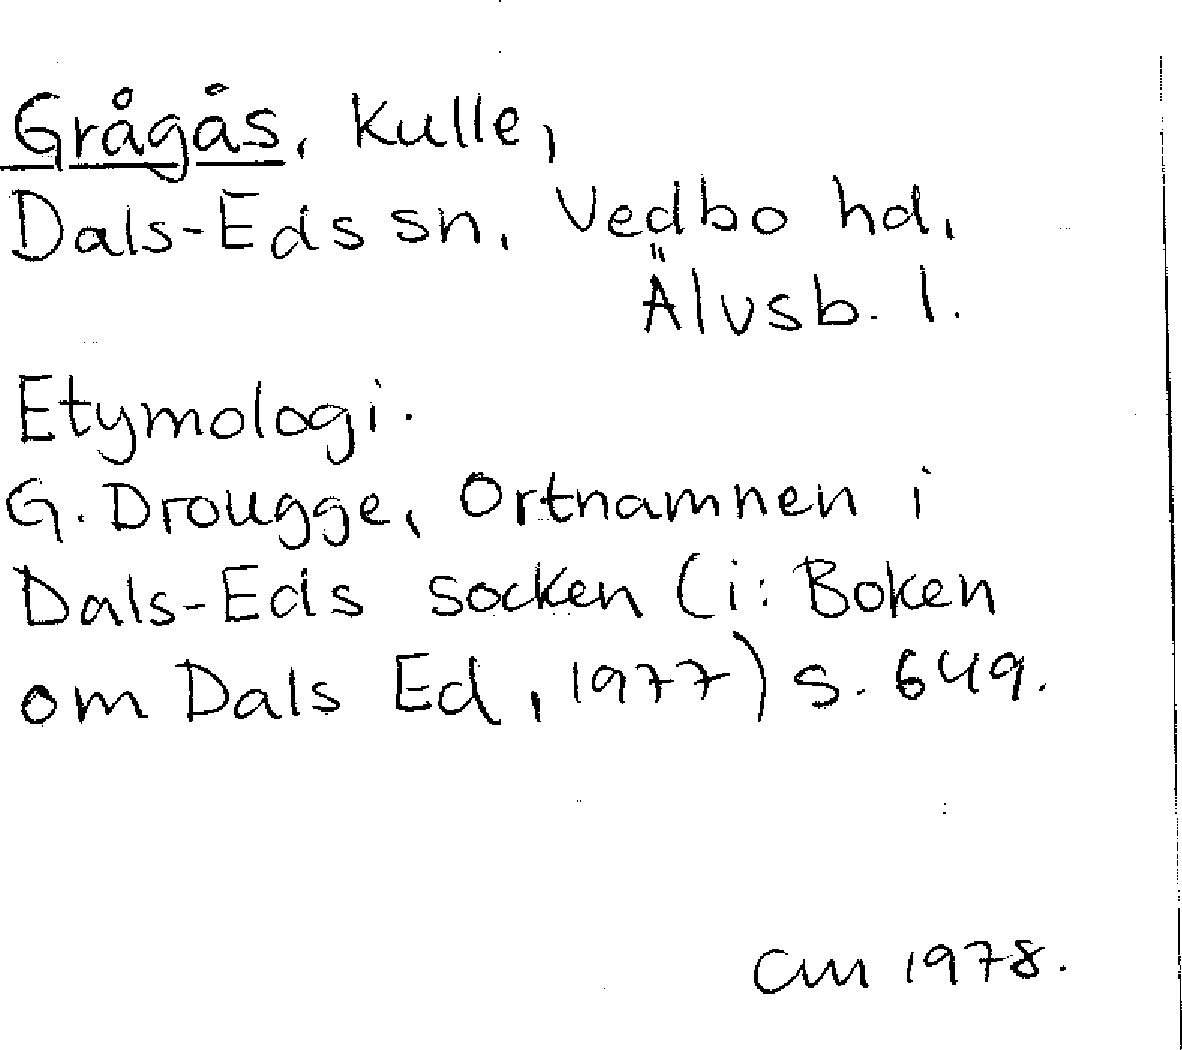 Grågås, Kulle,
Dals-Eds sn, Vedbo hd,
Älvsb. l.
Etymologi.
G. Drougge, Ortnamnen i
Dals-Eds socken (i: Boken
om Dals Ed, 1977) s. 649.
CM 1978.